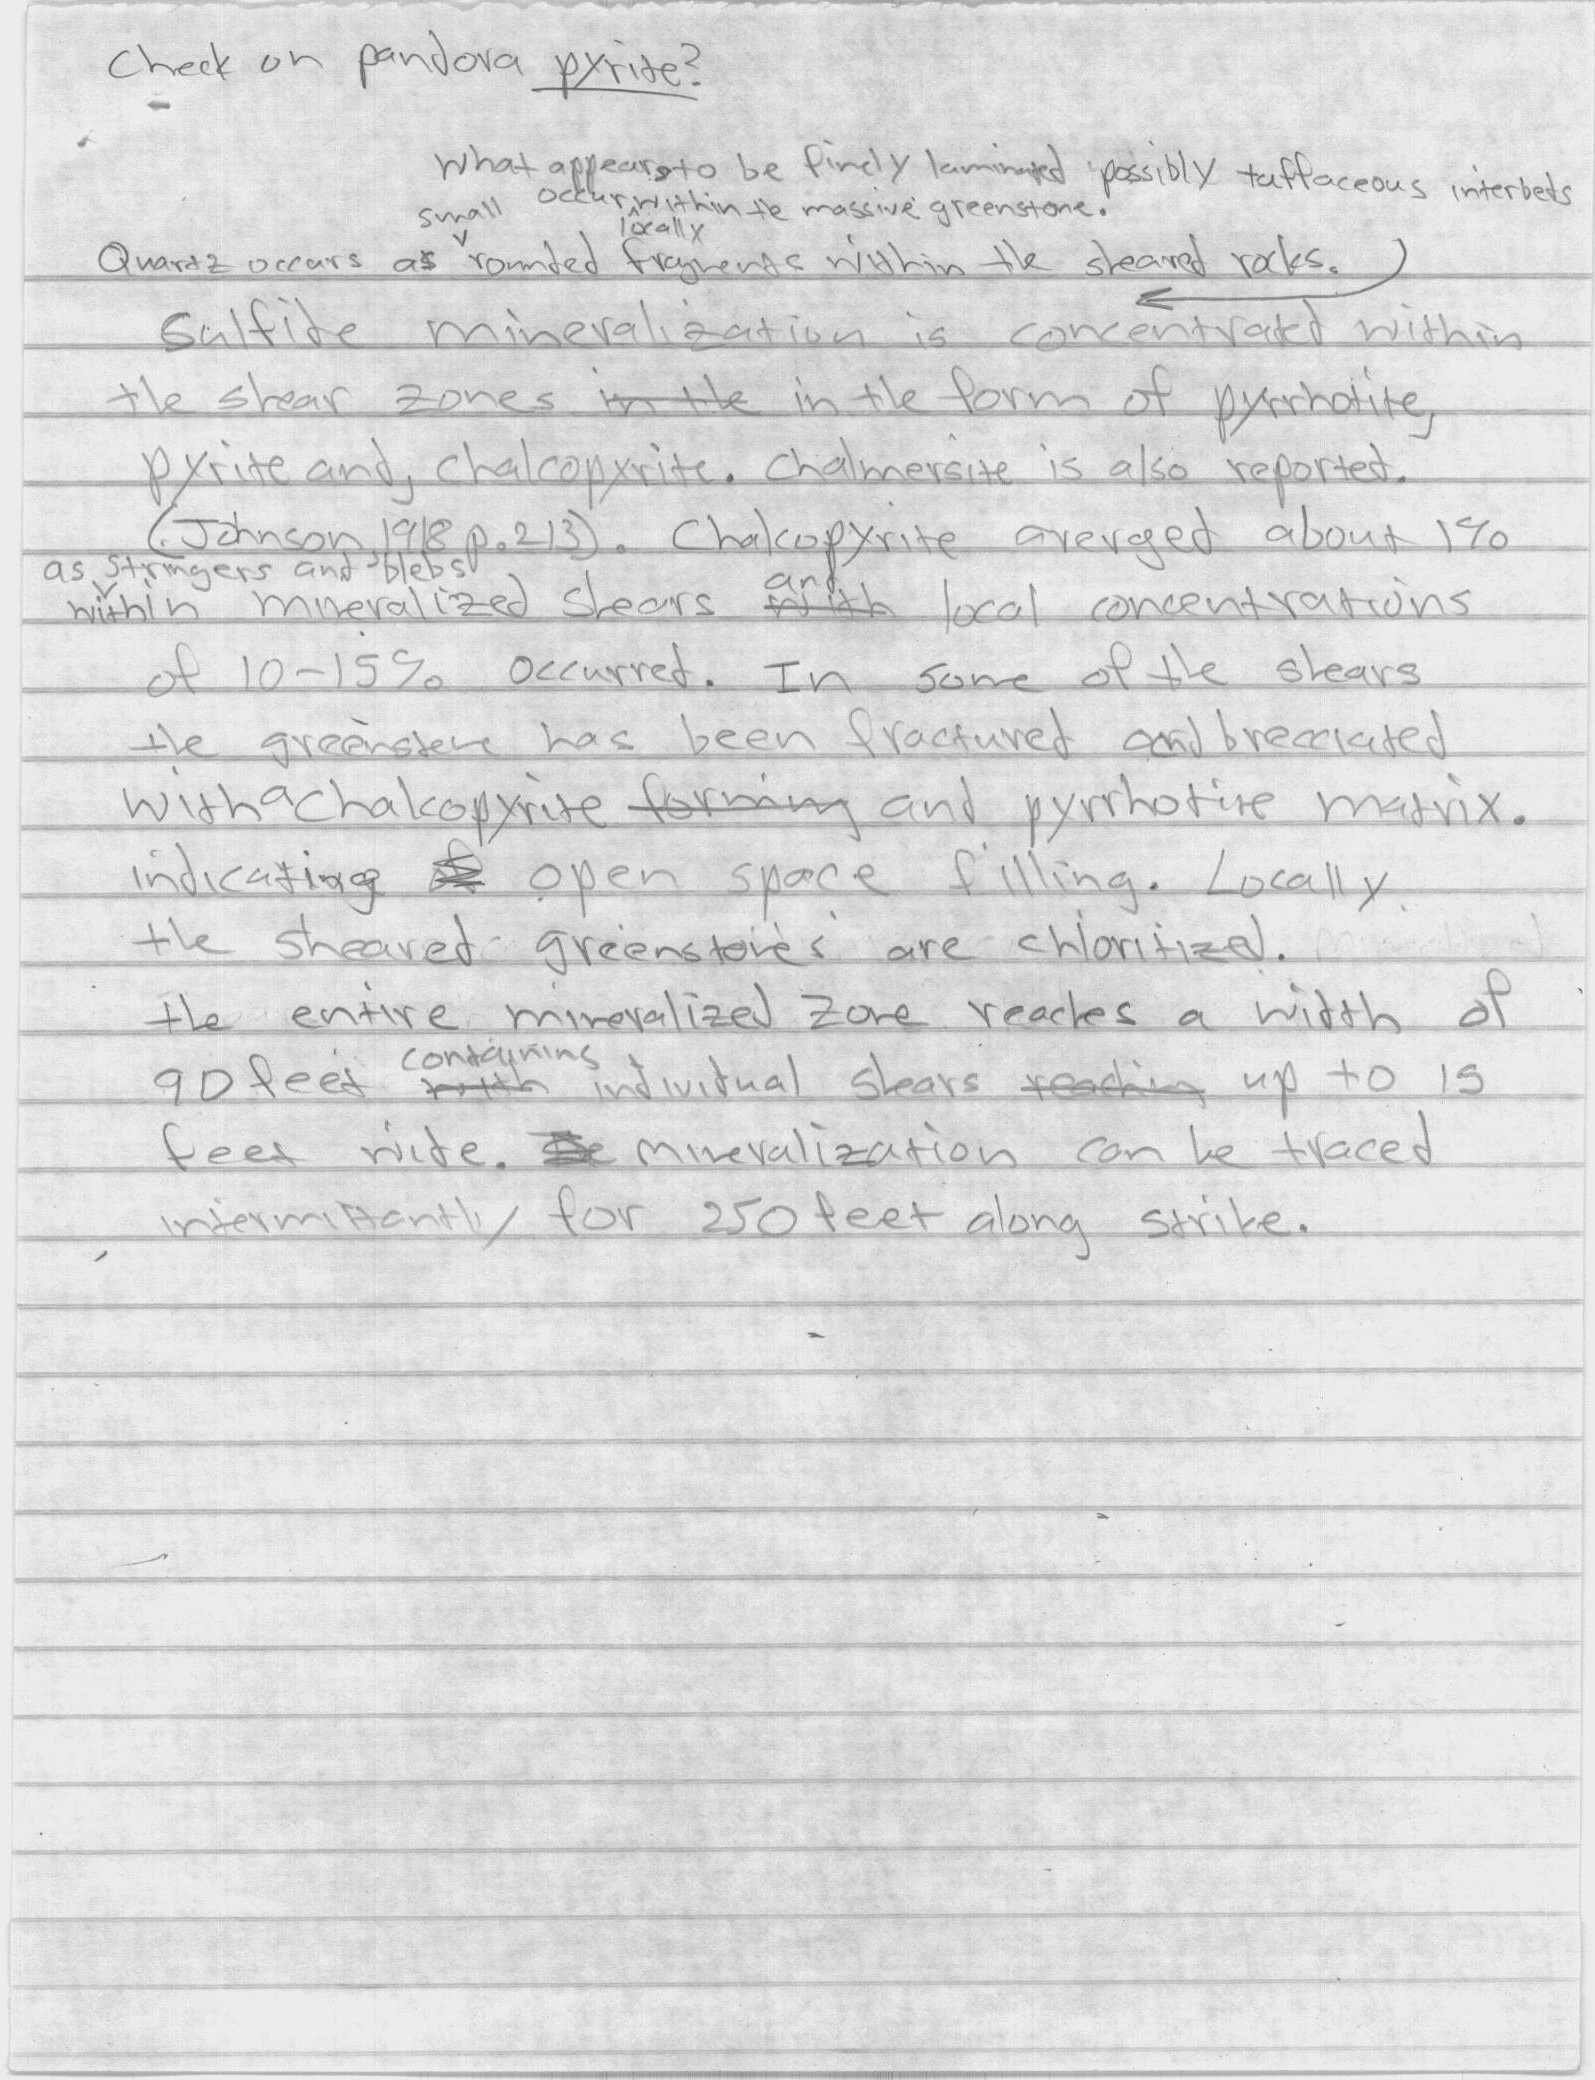 Check on pandora pyrite?
What appears to be finely laminated possibly tuffaceous interbeds
occur within the massive greenstone.
small
locally
Quartz occurs as rounded fragments within the sheared rocks.
Sulfide mineralization is concentrated within
the shear zones in the in the form of pyrrhotite,
pyrite and, chalcopyrite. Chalmersite is also reported.
(Johnson 1918 p. 213). Chalcopyrite averged about 1%
as stringers and blebs
and
within mineralized shears with local concentrations
of 10-15% occurred. In some of the shears
the greenstone has been fractured and brecciated
with a chalcopyrite forming and pyrrhotite matrix.
indicating open space filling. Locally
the sheared greenstones are chloritized.
the entire mineralized zone reaches a width of
containing
90 feet with individual shears reaching up to 15
feet wide. mineralization can be traced
intermittantly for 250 feet along strike.